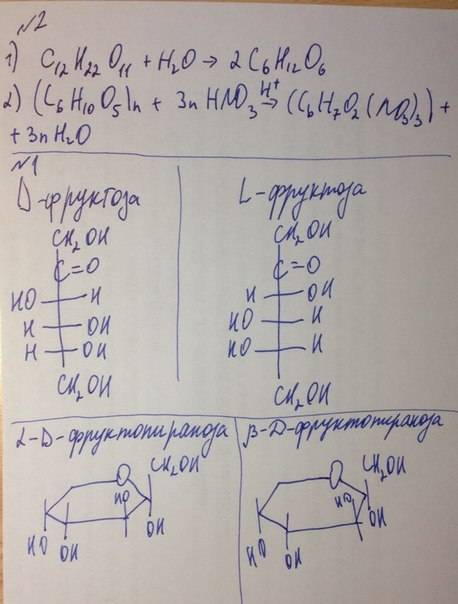 №2
1) C12H22O11 + H2O → 2C6H12O6
2) (C6H10O5)n + 3n HNO3 H+→ (C6H7O2(NO3)3) +
+ 3n H2O
№1
D-фруктоза
CH2OH
C=O
HO H
H OH
H OH
CH2OH
L-фруктоза
CH2OH
C=O
H OH
HO H
HO H
CH2OH
α-D-фруктопираноза
O
CH2OH
HO
HO OH OH
β-D-фруктопираноза
O
CH2OH
HO
OH
HO OH